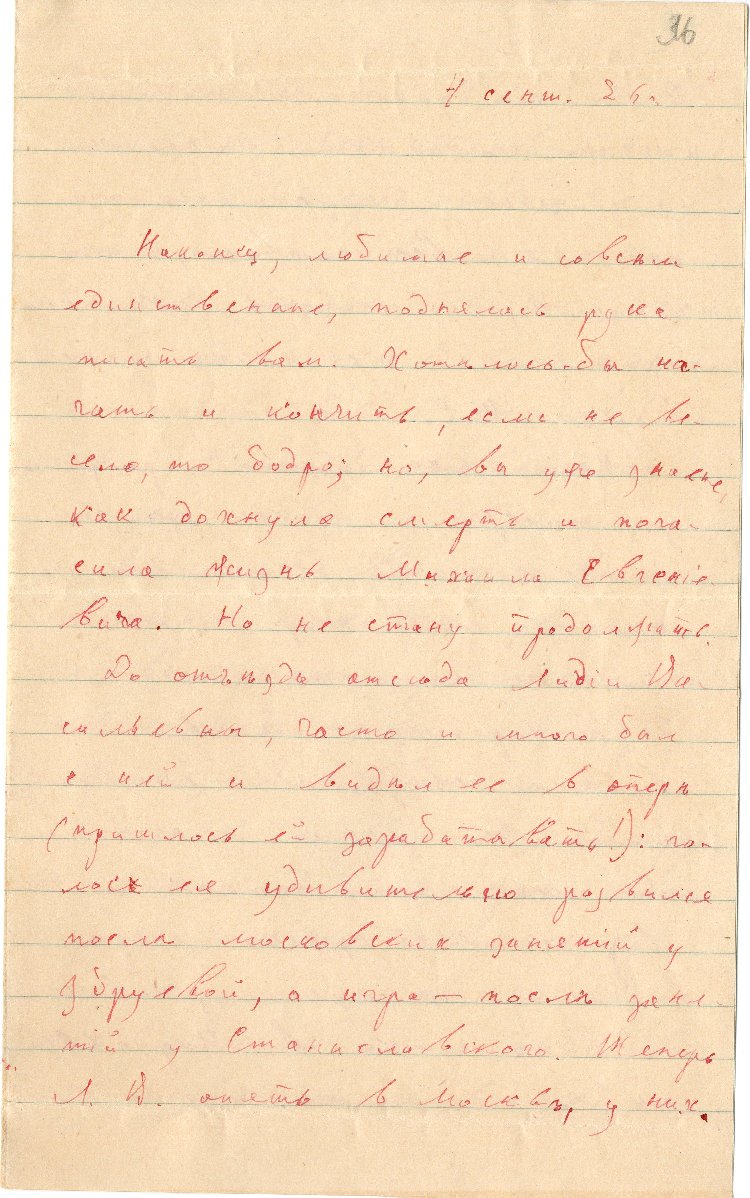 36
7 сент. 26 г.
Наконец, любимые и совсем
единственные, поднялась рука
писать вам. Хотѣлось-бы на-
чать и кончить, если не ве-
село, то бодро; но, вы уже знаете,
как дохнула смерть и пога-
сила жизнь Михаила Евгеніе-
вича. Но не стану продолжать.
До отъѣзда отсюда Лидіи Ва-
сильевны, часто и много был
с ней и видѣл ее в оперѣ
(пришлось ей зарабатывать!): го-
лос ея удивительно развился
послѣ московских занятій у
Збруевой, а игра — послѣ заня-
тій у Станиславского. Теперь
Л. В. опять в Москвѣ, у них.